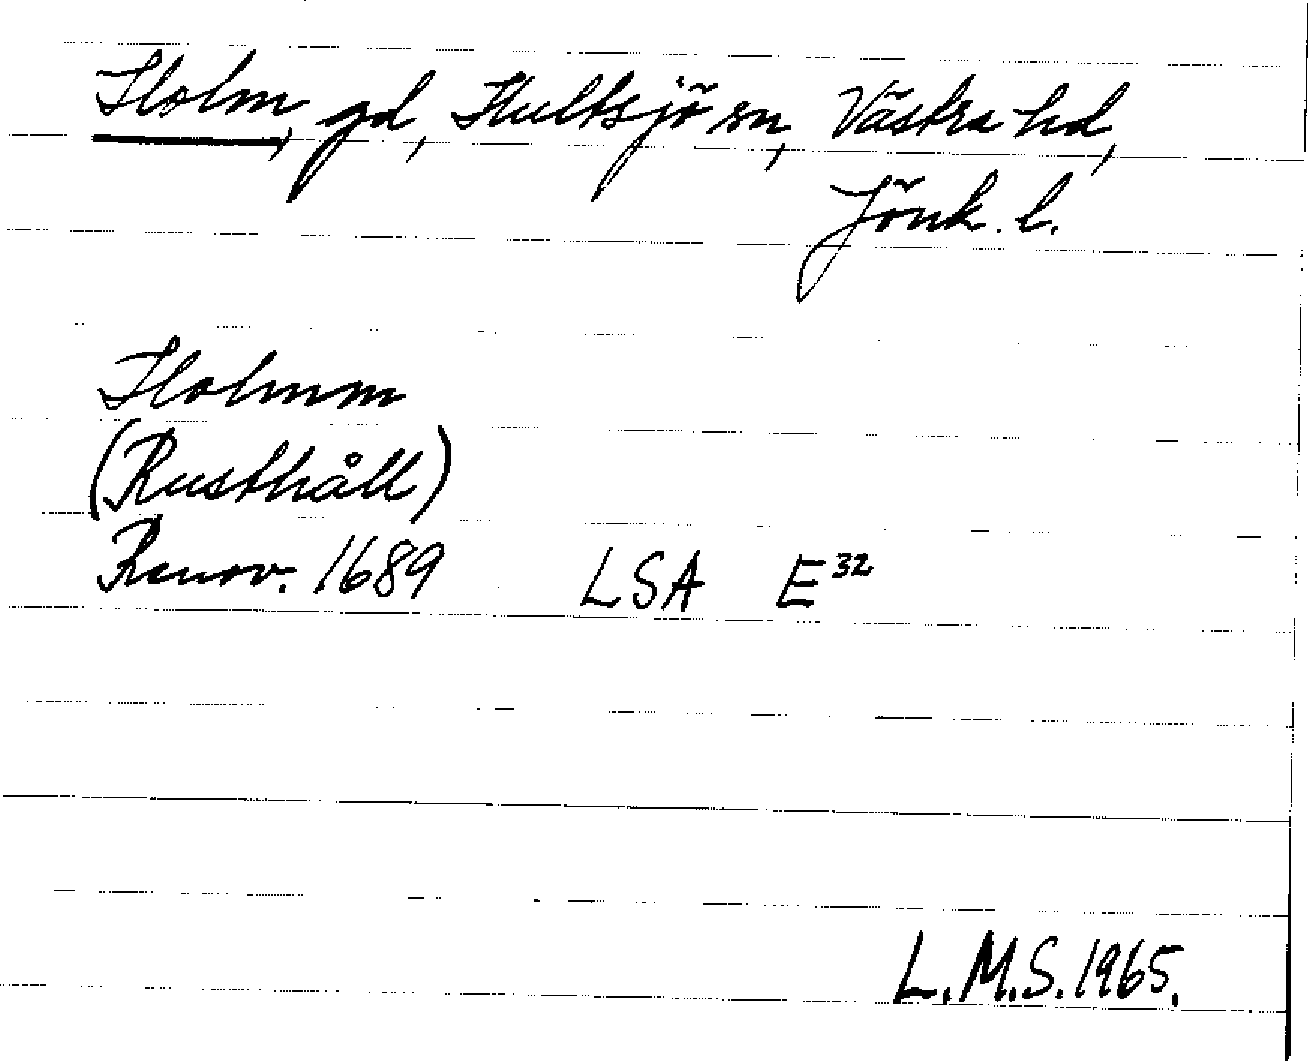 Holm, gd, Hultsjö sn, Västra hd,
Jönk. l.
Holmm
(Rusthåll)
Renov. 1689 LSA E³²
L.M.S. 1965.